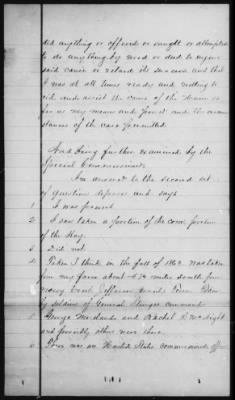 did anything or offered or sought or attempted
to do anything by word or deed to injure
said cause or retard its success and that
I was at all times ready and willing to
aid and assist the cause of the Union so
far as my means and power and the circum
stances of the case permitted.
And being further examined by the
Special Commissioner
In answer to the second set
of questions deposes and says
1 I was present
2 I saw taken a portion of the corn portion
of the Hay.
3 Did not
4 Taken I think in the fall of 1863. Was taken
from my farm about miles south from
County Tenn
by soldiers of General command
5 George and Rachel
and possibly others were there.
6 There was an United States commissioned off